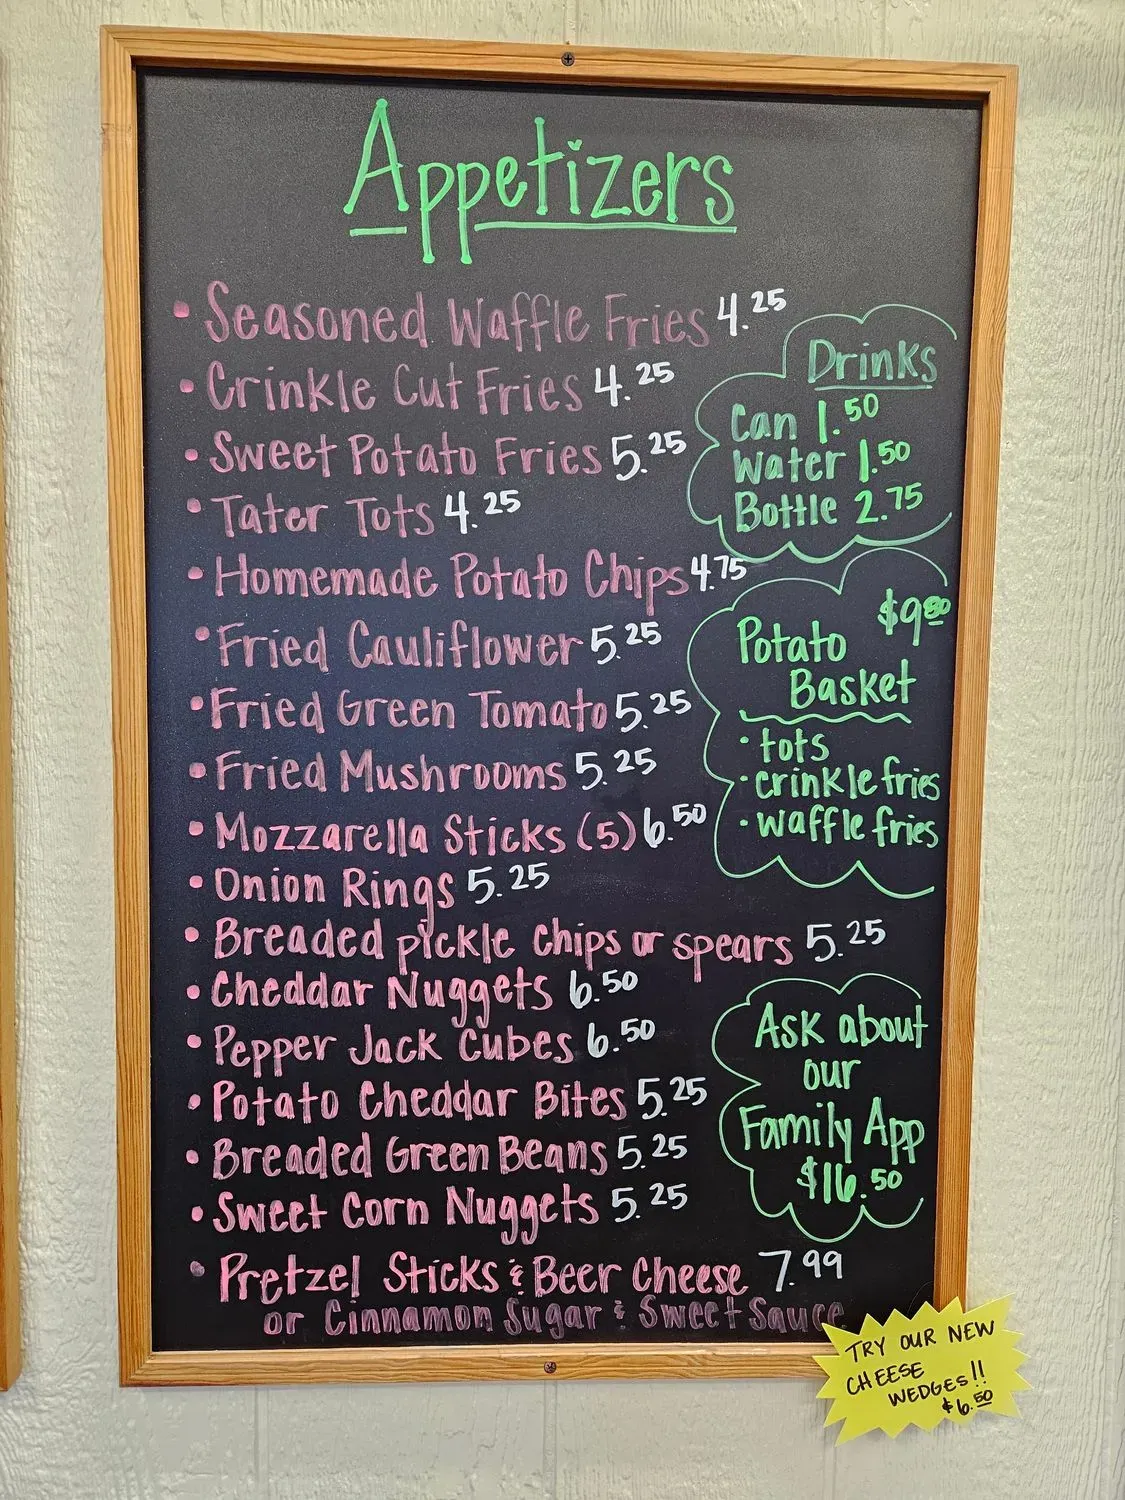 Appetizers
• Seasoned Waffle Fries 4.25
• Crinkle Cut Fries 4.25
• Sweet Potato Fries 5.25
• Tater Tots 4.25
• Homemade Potato Chips 4.75
• Fried Cauliflower 5.25
• Fried Green Tomato 5.25
• Fried Mushrooms 5.25
• Mozzarella Sticks (5) 6.50
• Onion Rings 5.25
• Breaded pickle chips or spears 5.25
• Cheddar Nuggets 6.50
• Pepper Jack Cubes 6.50
• Potato Cheddar Bites 5.25
• Breaded Green Beans 5.25
• Sweet Corn Nuggets 5.25
• Pretzel Sticks & Beer Cheese 7.99
or Cinnamon Sugar & Sweet Sauce
Drinks
Can 1.50
Water 1.50
Bottle 2.75
Potato
Basket
• tots
• crinkle fries
• waffle fries
Ask about
our
Family App
$16.50
TRY OUR NEW
CHEESE
WEDGES!!
$6.50